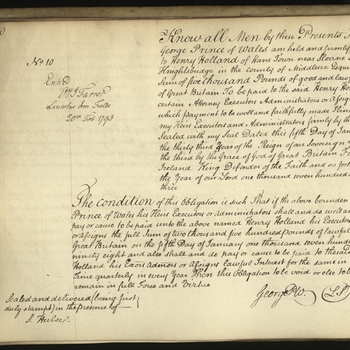 No 10
Entd
Lincolns Inn Fields
20th Feb 1793
Know all Men by these Presents
George Prince of Wales am held and firmly
to Henry Holland of Hans Town near Sloane
in the County of Middlesex Esquire
Sum of five thousand Pounds of good and law
of Great Britain To be paid to the said Henry Ho
certain Attorney Executors Administrators or Assign
which payment to be well and faithfully made
my Heirs Executors and Administrators firmly by th
Sealed with my Seal Dated this fifth Day of Jan
the thirty third Year of the Reign of our Sovereign
the third by the Grace of God of Great Britain F
Ireland King Defender of the Faith and so forth
the Year of our Lord one thousand seven hundred
three
The Condition of this Obligation is such That if the above bounden
Prince of Wales his Heirs Executors or Administrators shall do and well an
pay or cause to be paid unto the above named Henry Holland his Executors
or Assigns the full Sum of two thousand five hundred pounds of lawful
Great Britain on the fifth Day of January one thousand seven hund
ninety eight and also shall and do pay or cause to be paid to the said
Holland his Exors Admors or Assigns lawful Interest for the same in
Time quarterly in every Year Then this Obligation to be void or else to be
remain in full Force and Virtue
Sealed and delivered (being first
duly stampt) in the presence of
George P. W. (LS)